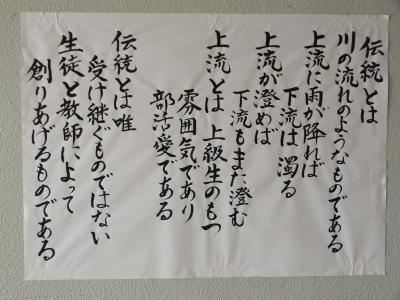 伝統とは
川の流れのようなものである
上流に雨が降れば
下流は濁る
上流が澄めば
下流もまた澄む
上流とは 上級生のもつ
雰囲気であり
部活愛である
伝統とは唯
受け継ぐものではない
生徒と教師によって
創りあげるものである